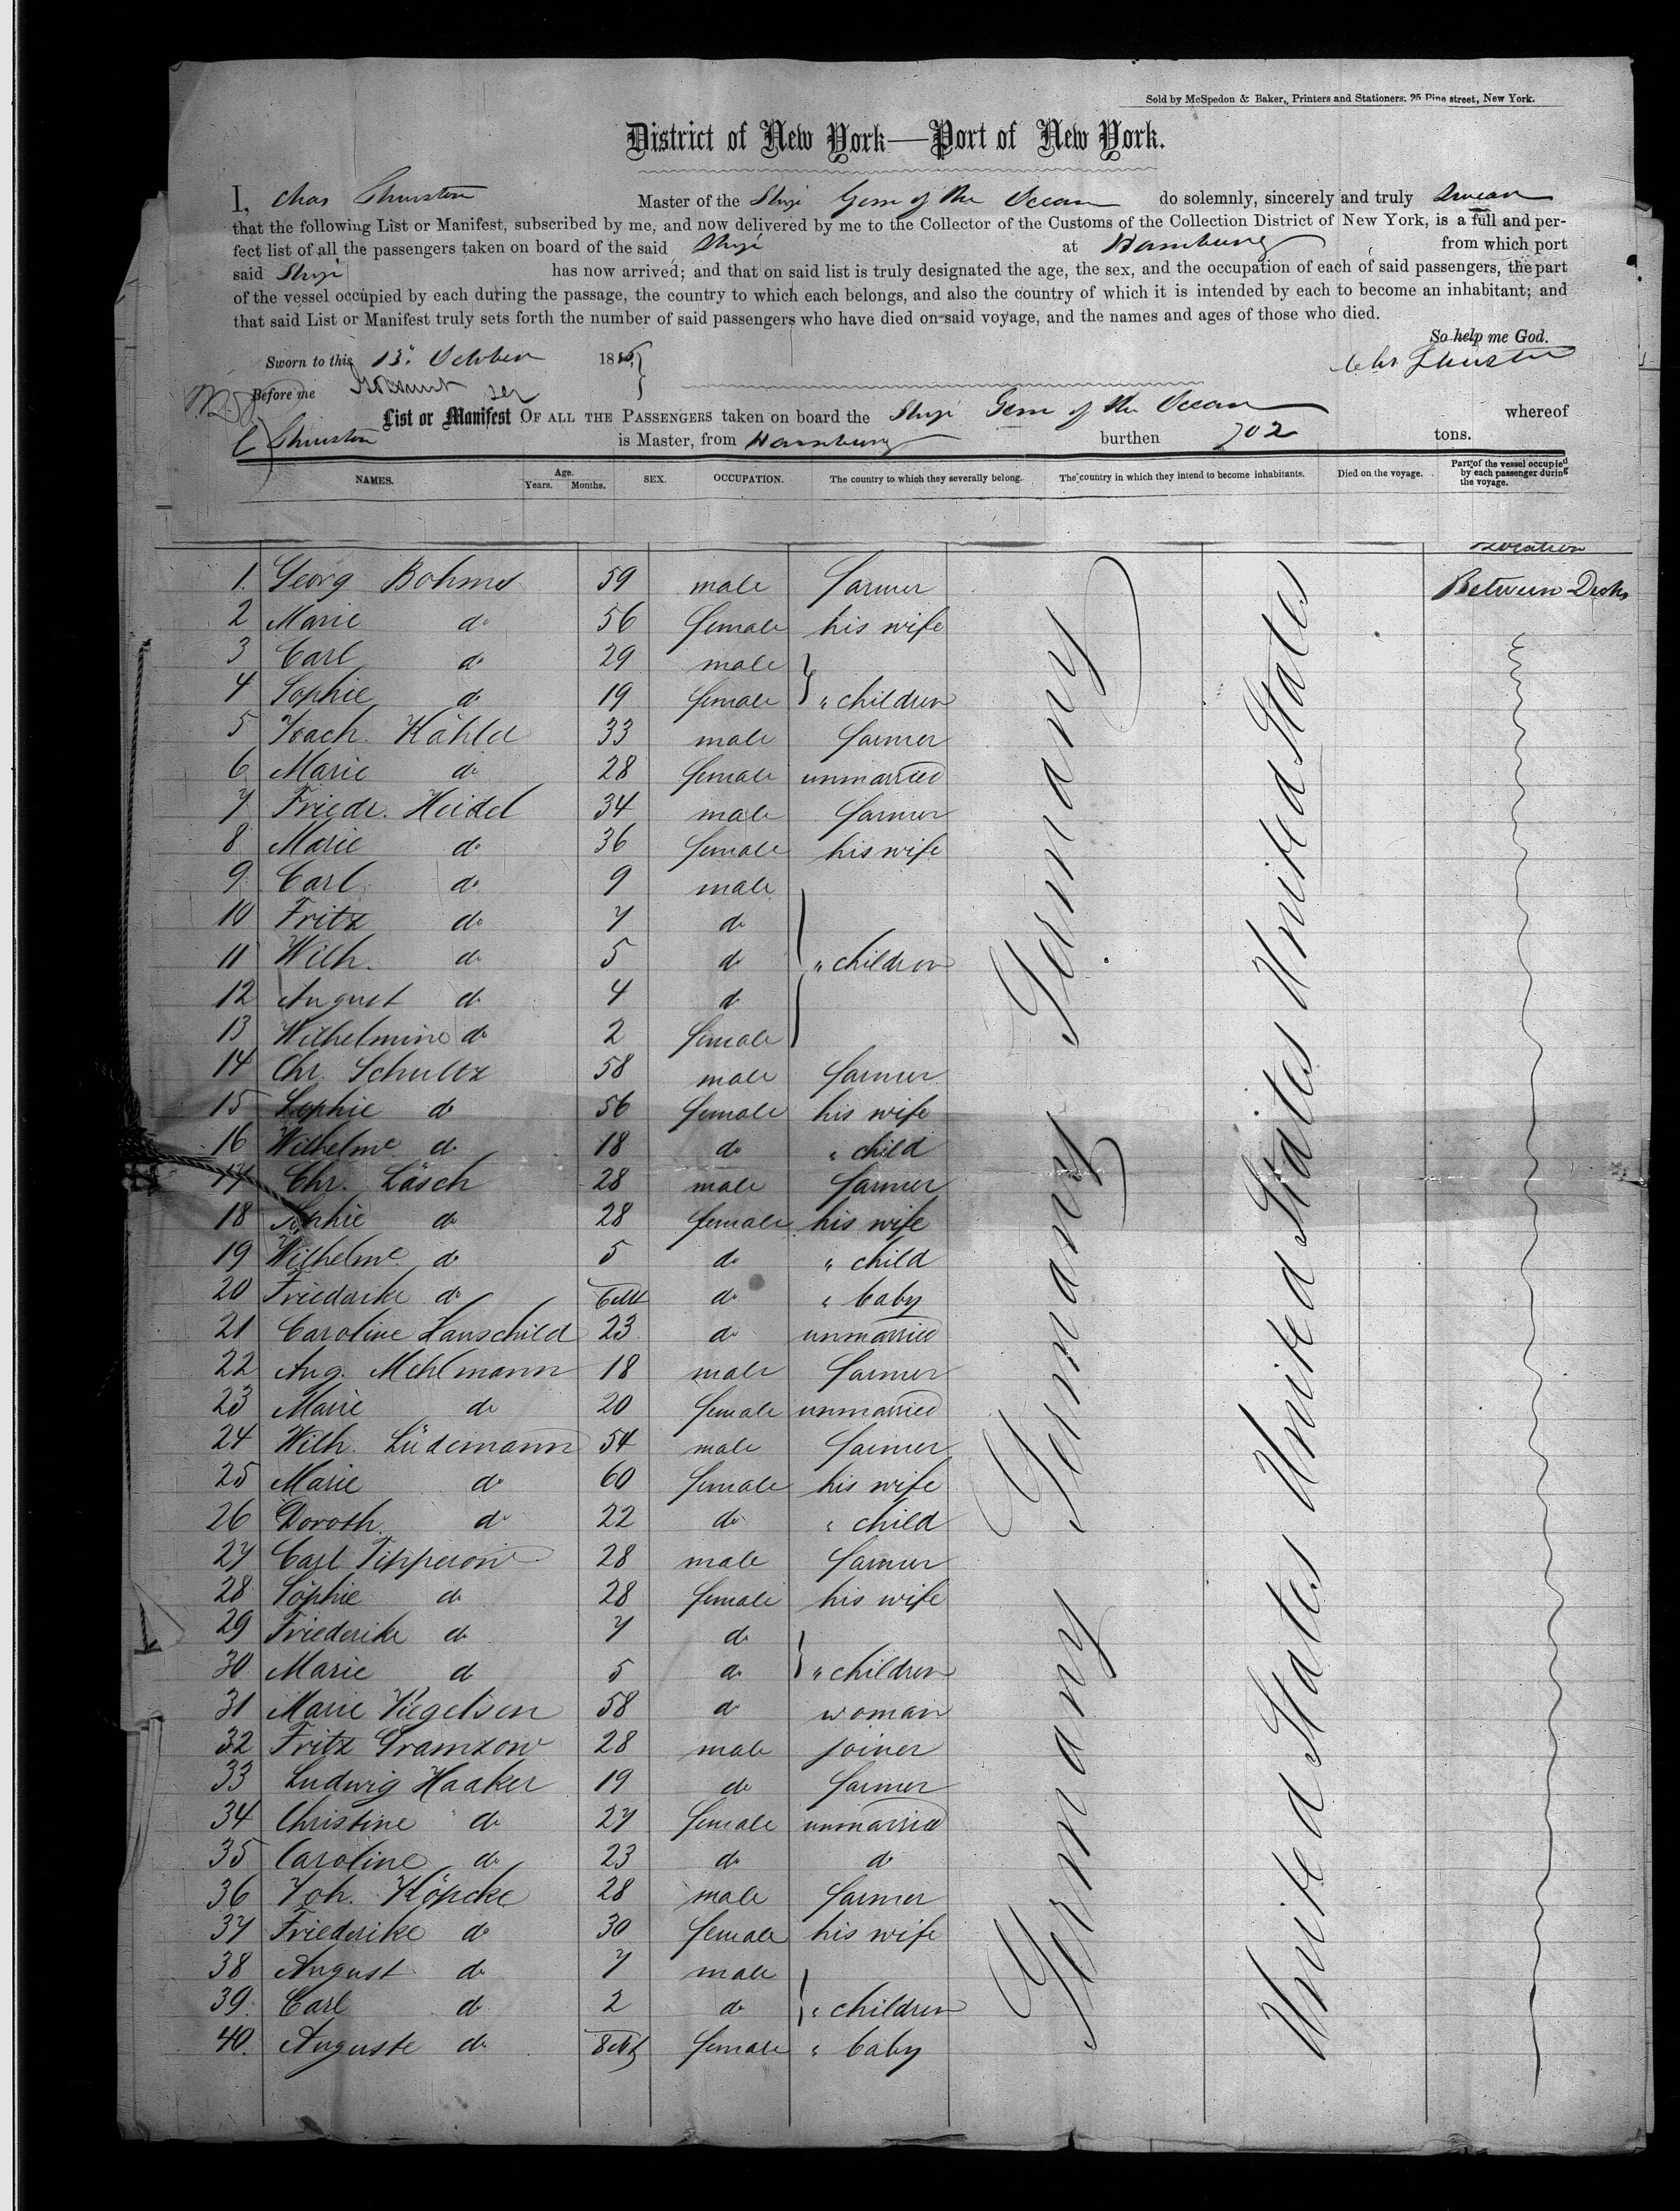 Sold by McSpedon & Baker, Printers and Stationers, 25 Pine street, New York.
District of New York—Port of New York.
I, Chas Thurston Master of the Ship Gem of the Ocean do solemnly, sincerely and truly Swear
that the following List or Manifest, subscribed by me, and now delivered by me to the Collector of the Customs of the Collection District of New York, is a full and per-
fect list of all the passengers taken on board of the said Ship at Hamburg from which port
said Ship has now arrived; and that on said list is truly designated the age, the sex, and the occupation of each of said passengers, the part
of the vessel occupied by each during the passage, the country to which each belongs, and also the country of which it is intended by each to become an inhabitant; and
that said List or Manifest truly sets forth the number of said passengers who have died on said voyage, and the names and ages of those who died.
So help me God.
Sworn to this 13. October 18 Chs Thurston
Before me
List or Manifest OF ALL THE PASSENGERS taken on board the Ship Gem of the Ocean whereof
C Thurston is Master, from Hamburg burthen 702 tons.
NAMES. Age. Years. Months. SEX. OCCUPATION. The country to which they severally belong. The country in which they intend to become inhabitants. Died on the voyage. Part of the vessel occupied by each passenger during the voyage.
Location
1. Georg Bohms 59 male farmer Between Decks
2 Marie do 56 female his wife
3 Carl do 29 male
4 Sophie do 19 female " children
5 Joach. Kähler 33 male farmer
6 Marie do 28 female unmarried
7 Friedr. Heidel 34 male farmer
8 Marie do 36 female his wife
9 Carl do 9 male
10 Fritz do 7 do
11 Wilh. do 5 do " children
12 August do 4 do
13 Wilhelmine do 2 female
14 Chr. Schultz 58 male farmer
15 Sophie do 56 female his wife
16 Wilhelme do 18 do " child
17 Chr. Läsch 28 male farmer
18 Sophie do 28 female his wife
19 Wilhelme do 5 do " child
20 Friederike do 6 Mt do " baby
21 Caroline Hauschild 23 do unmarried
22 Aug. Mehlmann 18 male farmer
23 Marie do 20 female unmarried
24 Wilh. Lüdemann 54 male farmer
25 Marie do 60 female his wife
26 Doroth. do 22 do " child
27 Carl Tipperow 28 male farmer
28 Sophie do 28 female his wife
29 Friederike do 7 do
30 Marie do 5 do " children
31 Marie Kegelsen 58 do woman
32 Fritz Gramzow 28 male joiner
33 Ludwig Haaker 19 do farmer
34 Christine do 27 female unmarried
35 Caroline do 23 do do
36 Joh. Köpcke 28 male farmer
37 Friederike do 30 female his wife
38 August do 7 male
39. Carl do 2 do " children
40. Auguste do 8 Mt female " baby
Germany Germany Germany
United States United States United States